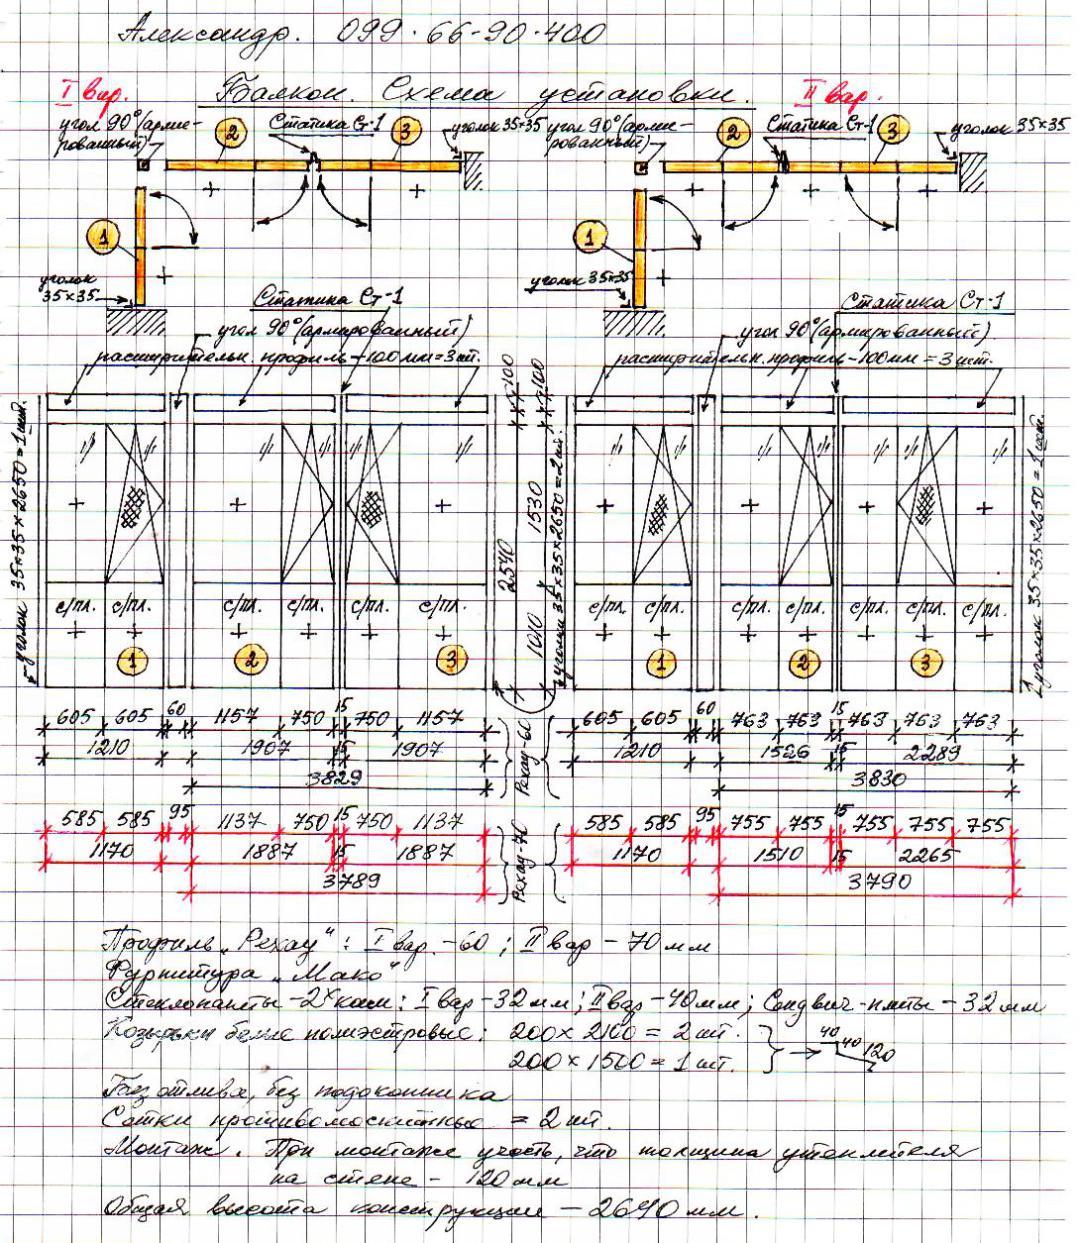 Александр. 099·66-90-400
I вар. Балкон. Схема установки. II вар.
угол 90°(арми-
рованный)
2
Статика Ст-1
3
уголок 35×35
угол 90°(арми-
рованный)
2
Статика Ст-1
3
уголок 35×35
1
уголок
35×35
1
уголок 35×35
Статика Ст-1
угол 90°(армированный)
расширительн. профиль-100мм=3шт.
Статика Ст-1
угол 90°(армированный)
расширительн. профиль-100мм=3шт.
уголок 35×35×2650=1шт.
100
2540
1530
1010
100
уголки 35×35×2650=2шт.
уголок 35×35×2650=1шт.
с/пл. с/пл. с/пл. с/пл. с/пл. с/пл.
с/пл. с/пл. с/пл. с/пл. с/пл. с/пл. с/пл.
1 2 3
1 2 3
605 605 60 1157 750 15 750 1157
1210 1907 15 1907
3829
Рехау-60
605 605 60 763 763 15 763 763 763
1210 1526 15 2289
3830
585 585 95 1137 750 15 750 1137
1170 1887 15 1887
3789
Рехау-70
585 585 95 755 755 15 755 755 755
1170 1510 15 2265
3790
Профиль „Рехау“: I вар.-60; II вар-70мм
Фурнитура „Мако“
Стеклопакеты-2ˣкам: I вар-32мм; II вар-40мм; Сендвич-плиты-32мм
Козырьки белые полиэстровые: 200×2100=2шт.
200×1500=1шт.
40 40 120
Без отлива, без подоконника
Сетки противомоскитные = 2шт.
Монтаж. При монтаже учесть, что толщина утеплителя
на стене - 120мм
Общая высота конструкции - 2640мм.